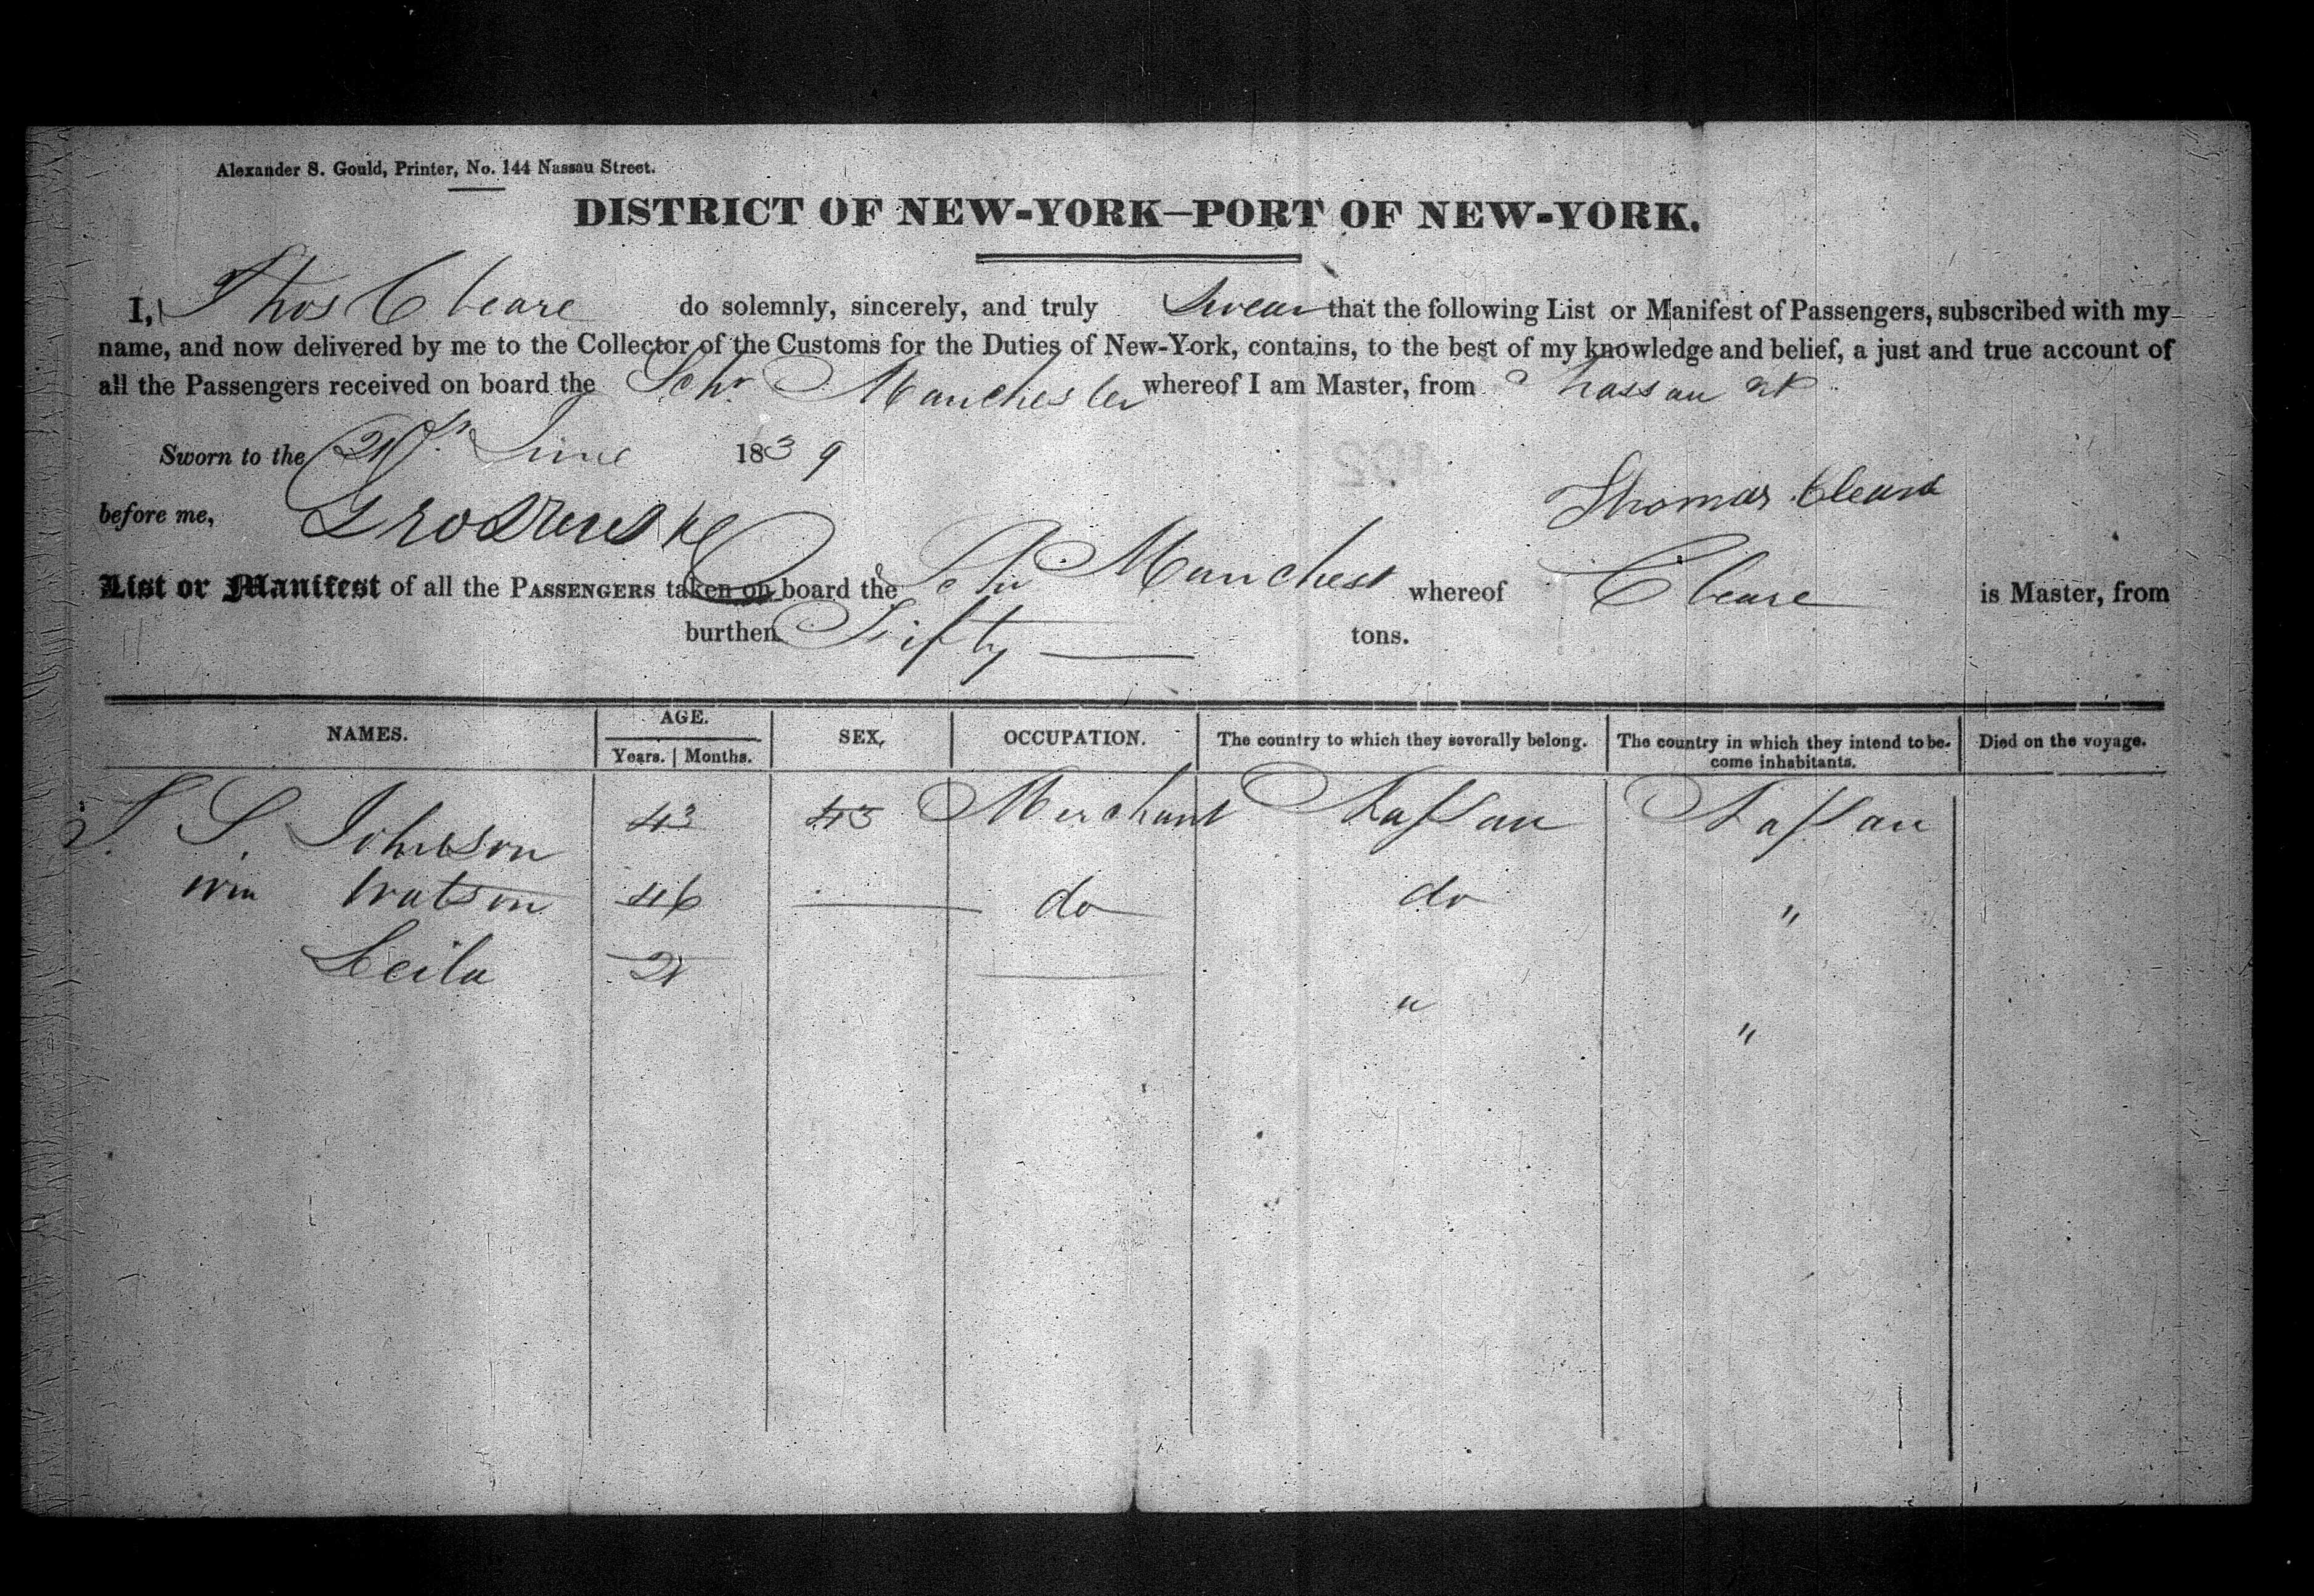 Alexander S. Gould, Printer, No. 144 Nassau Street.
DISTRICT OF NEW-YORK—PORT OF NEW-YORK.
I, Thos Cleare do solemnly, sincerely, and truly Swear that the following List or Manifest of Passengers, subscribed with my
name, and now delivered by me to the Collector of the Customs for the Duties of New-York, contains, to the best of my knowledge and belief, a just and true account of
all the Passengers received on board the Schr Manchester whereof I am Master, from Nassau NP
Sworn to the June 1839
before me,
Thomas Cleare
List or Manifest of all the PASSENGERS taken on board the Schr Manchest whereof Cleare is Master, from
burthen Fifty tons.
NAMES. AGE. SEX, OCCUPATION. The country to which they severally belong. The country in which they intend to be- Died on the voyage.
Years. Months. come inhabitants.
S. Johnson 43 43 Merchant Nassau Nassau
Wm Watson 46 — do do "
Leila — " "